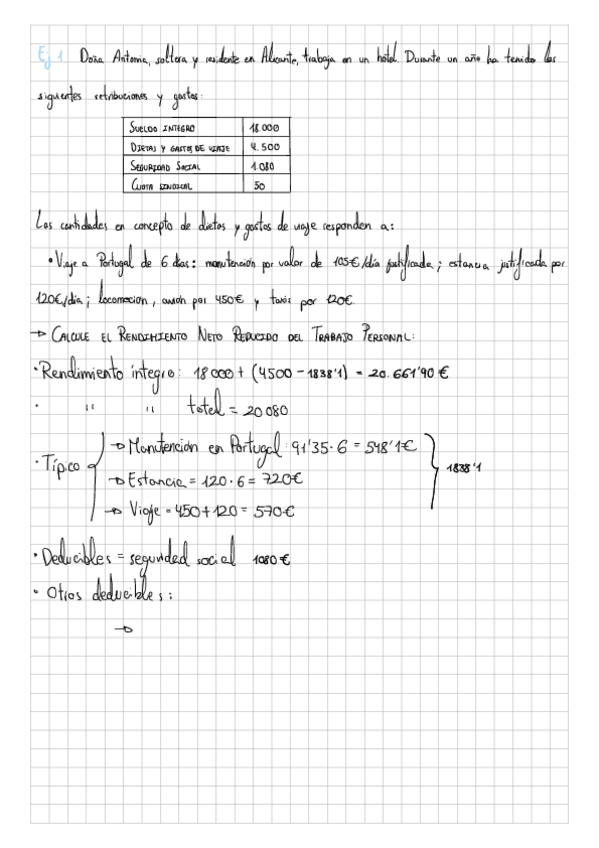 Ej 1 Doña Antonia, soltera y residente en Alicante, trabaja en un hotel. Durante un año ha tenido las
siguientes retribuciones y gastos:
SUELDO INTEGRO 18.000
DIETAS Y GASTOS DE VIAJE 4.500
SEGURIDAD SOCIAL 1.080
CUOTA SINDICAL 50
Las cantidades en concepto de dietas y gastos de viaje responden a:
• Viaje a Portugal de 6 días: manutención por valor de 105€/día justificada; estancia justificada por
120€/día; locomoción, avión por 450€ y taxis por 120€.
→ CALCULE EL RENDIMIENTO NETO REDUCIDO DEL TRABAJO PERSONAL:
• Rendimiento íntegro: 18000 + (4500 - 1838'1) = 20.661'90 €
• " " total = 20080
• Típico → Manutención en Portugal: 91'35·6 = 548'1€
→ Estancia = 120·6 = 720€
→ Viaje = 450+120 = 570€
1838'1
• Deducibles = seguridad social 1080€
• Otros deducibles:
→